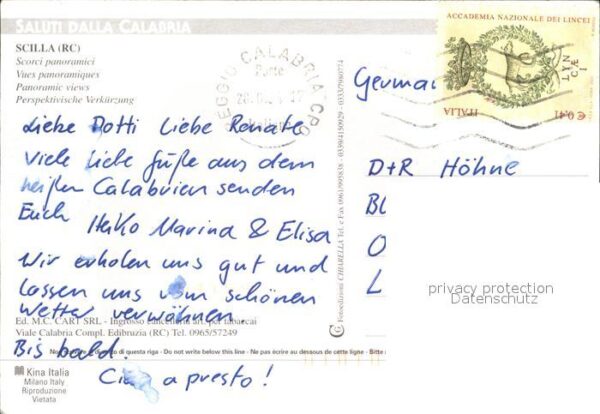 SALUTI DALLA CALABRIA
SCILLA (RC)
Scorci panoramici
Vues panoramiques
Panoramic views
Perspektivische Verkürzung
REGGIO CALABRIA CPO
ACCADEMIA NAZIONALE DEI LINCEI
LYNCÆI
ITALIA
€ 0,41
German
Liebe Dotti Liebe Renate
Viele liebe Grüße aus dem
heißen Calabrien senden
Euch Heiko Marina & Elisa
Wir erholen uns gut und
lassen uns vom schönen
Wetter verwöhnen.
Bis bald.
Ciao a presto!
D+R Höhne
Bl
O
L
privacy protection
Datenschutz
© Fotoedizioni CHIARELLA Tel. e Fax 0961/995838 - 0339/4150929 - 0333/7980774
Ed. M.C. CART SRL - Ingrosso cancelleria art. per tabaccai
Viale Calabria Compl. Edibruzia (RC) Tel. 0965/57249
di questa riga - Do not write below this line - Ne pas écrire au dessous de cette ligne - Bitte
Kina Italia
Milano Italy
Riproduzione
Vietata